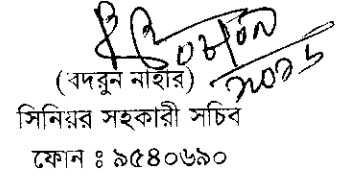 (বদরুন নাহার)
সিনিয়র সহকারী সচিব
ফোন ঃ ৯৫৪০৬৯০